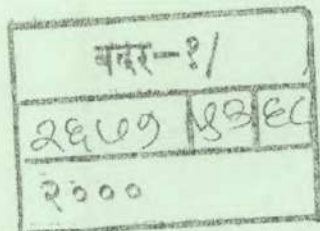 वदर-१/
२६७१ ५३ ६८
२०००